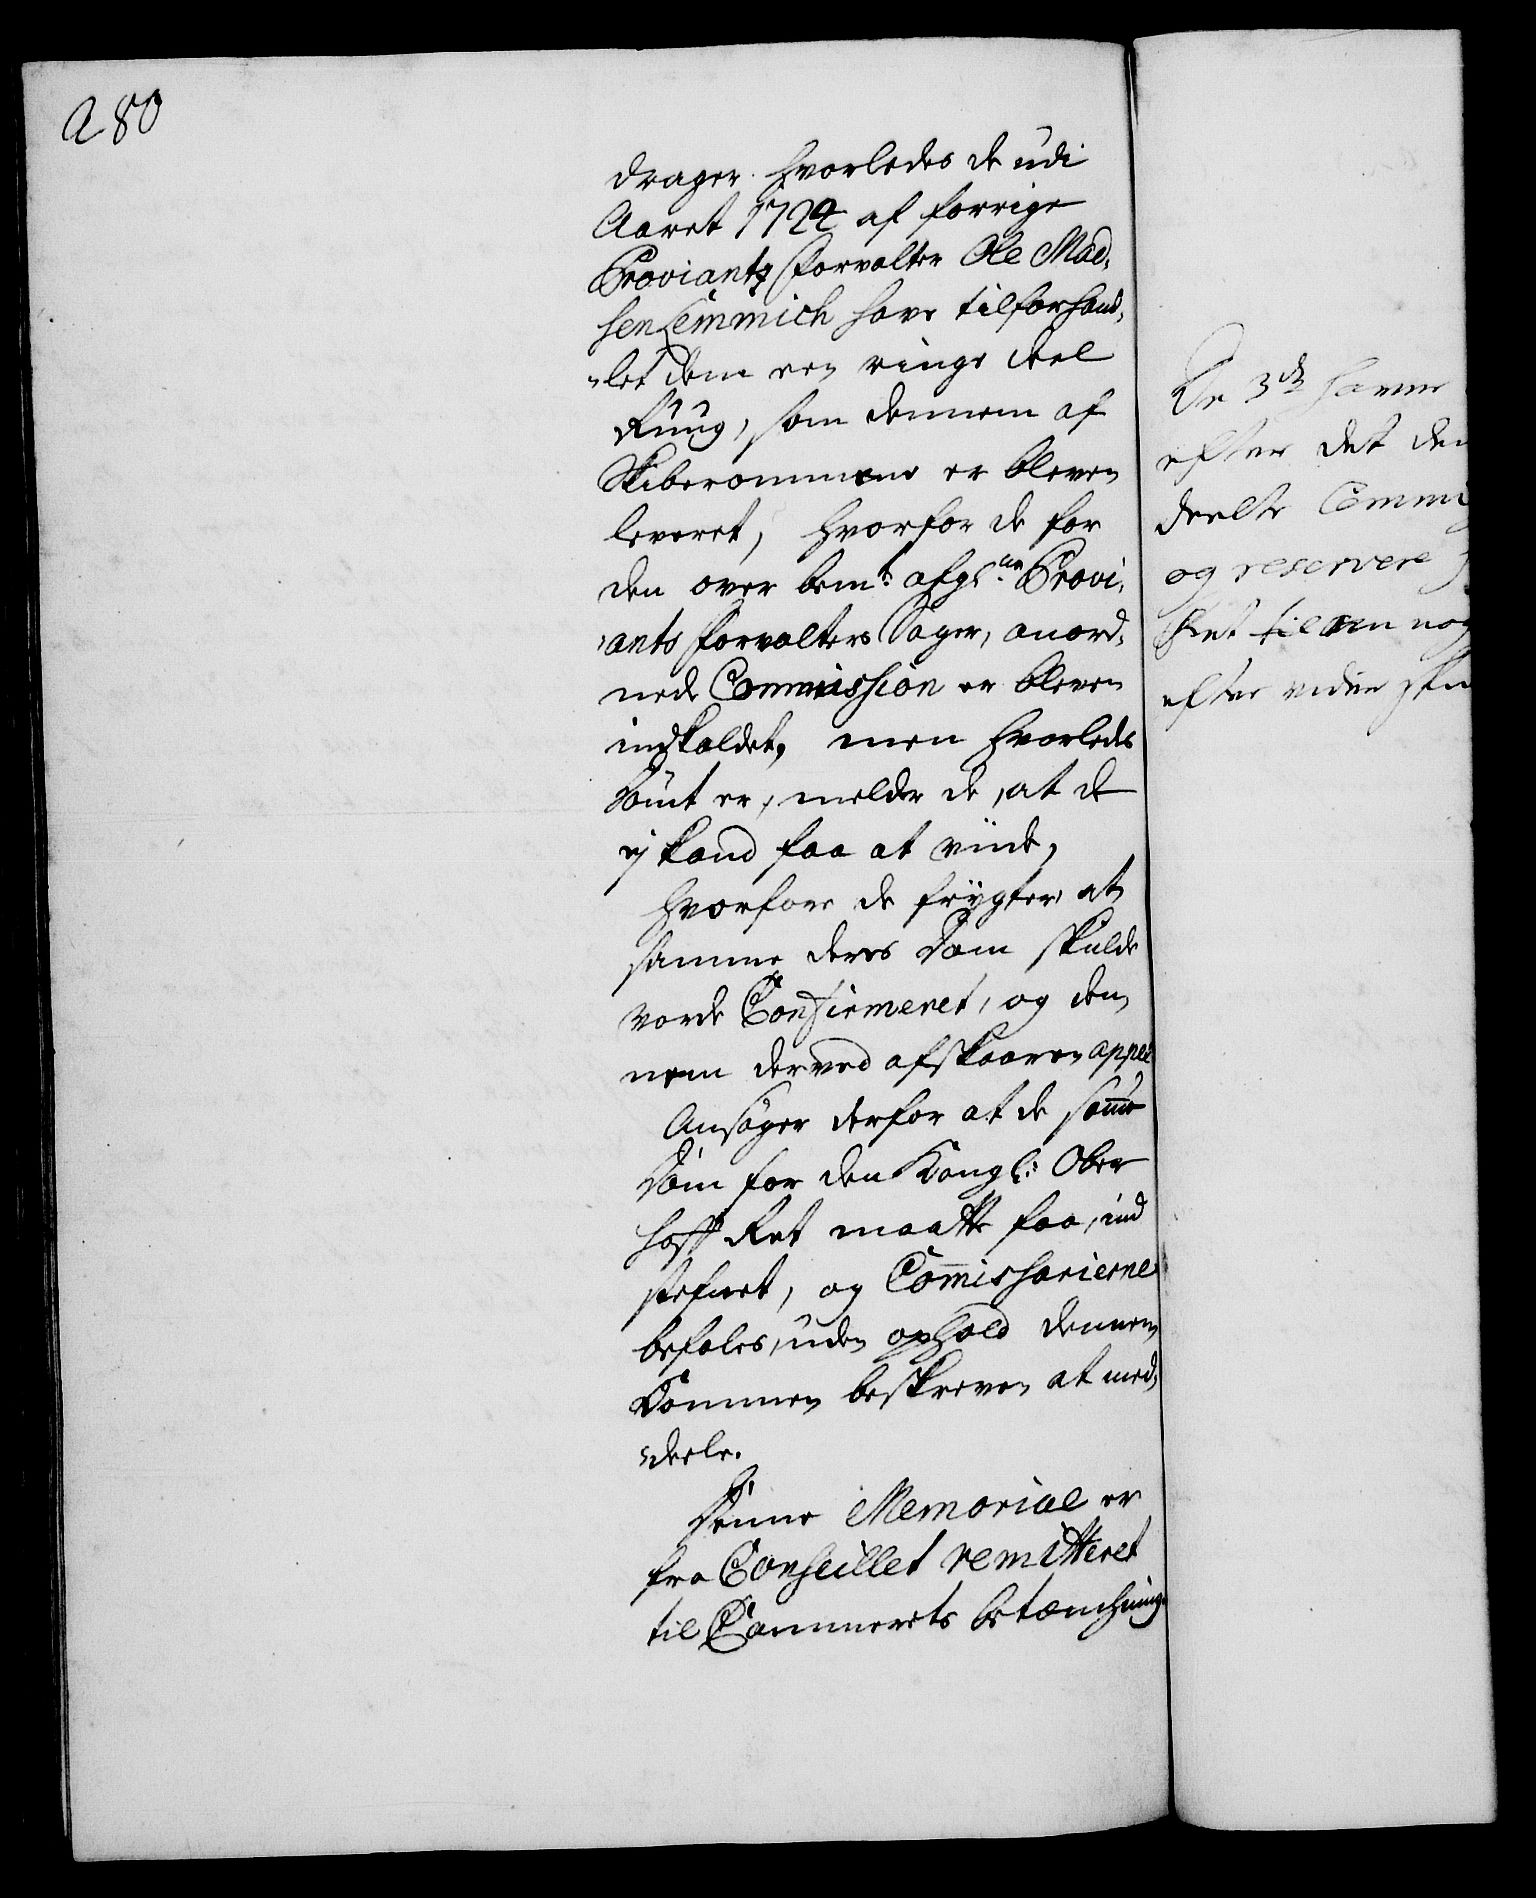 280
drager hvorledes de udi
Aaret 1724 af forrige
Proviants forvalter Ole Mad,
sen Lemmich have tilforhand,
,,let dem een ringe deel
Ruug, som dennem af
Skiberommene er bleven
leveret, hvorfor de for
den over bemt: afg: Provi,
,ants forvalters Sager, anord,
nede Commission er bleven
indkaldet, men hvorledes
Dömt er, melder de, at de
ej kand faa at viide,
hvorfore de frygter at
samme deres Dom skulde
vorde Confirmeret, og den
nem derved afskaaren appel
Ansöger derfor at de samme
Dom for den Kongl: Ober
hoff Ret maatte faa, ind
stefnet, og Commissarierne
befales, uden ophold dennem
Dommen beskreven at med,
,,deele.
Denne Memorial er
fra Conseillet remitteret
til Cammerets betænchning
De 3de haver
efter det den
deelte Commi
og reservere
Ret til en nog
efter viden